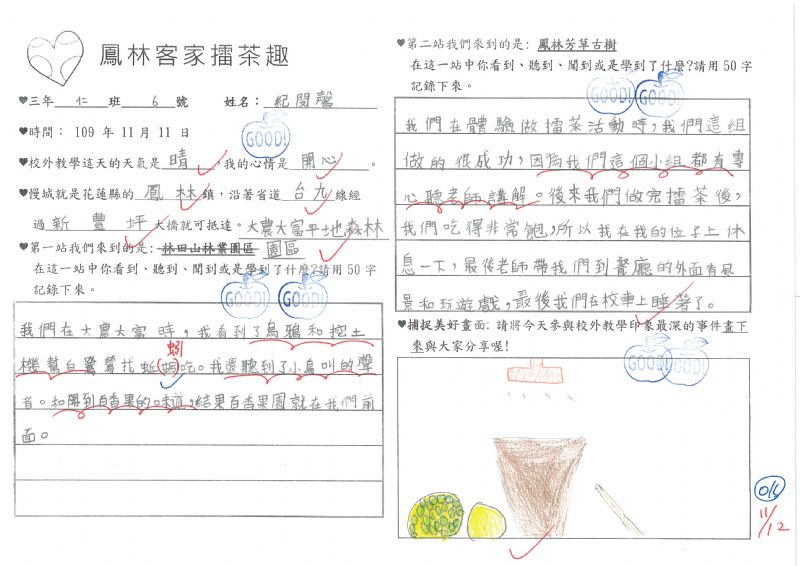 鳳林客家擂茶趣
♥三年 仁 班 6 號 姓名：紀閔馨
♥時間： 109 年 11 月 11 日
GOOD!
♥校外教學這天的天氣是 晴 ，我的心情是 開心 。
♥慢城就是花蓮縣的 鳳林 鎮，沿著省道 台九 線經
過 新豐坪 大橋就可抵達。大農大富平地森林
♥第一站我們來到的是: 林田山林業園區 園區
在這一站中你看到、聽到、聞到或是學到了什麼?請用 50 字
記錄下來。
GOOD! GOOD!
我們在大農大富時，我看到了烏鴉和挖土
蚓
機幫白鷺鷥找蚯蚓吃。我還聽到了小鳥叫的聲
音。和聞到百香果的味道，結果百香果園就在我們前
面。
♥第二站我們來到的是: 鳳林芳草古樹
在這一站中你看到、聽到、聞到或是學到了什麼?請用 50 字
記錄下來。
GOOD! GOOD!
我們在體驗做擂茶活動時，我們這組
做的很成功，因為我們這個小組都有專
心聽老師講解。後來我們做完擂茶後，
我們吃得非常飽，所以我在我的位子上休
息一下，最後老師帶我們到餐廳的外面看風
景和玩遊戲，最後我們在校車上睡著了。
♥捕捉美好畫面: 請將今天參與校外教學印象最深的事件畫下
來與大家分享喔!
GOOD! GOOD!
11/12